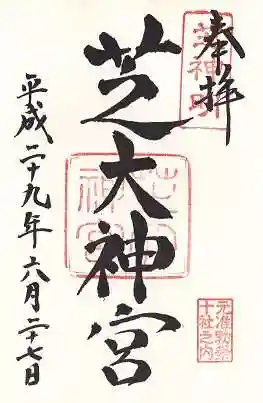 奉拝
芝神明
芝大神宮
平成二十九年六月二十七日
元准勅祭
十社之内